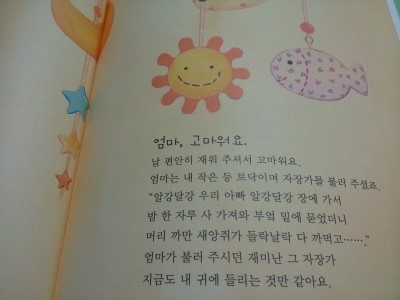 엄마, 고마워요.
날 편안히 재워 주셔서 고마워요.
엄마는 내 작은 등 토닥이며 자장가를 불러 주셨죠.
“알강달강 우리 아빠 알강달강 장에 가서
밤 한 자루 사 가져와 부엌 밑에 묻었더니
머리 까만 새앙쥐가 들락날락 다 까먹고…….”
엄마가 불러 주시던 재미난 그 자장가
지금도 내 귀에 들리는 것만 같아요.